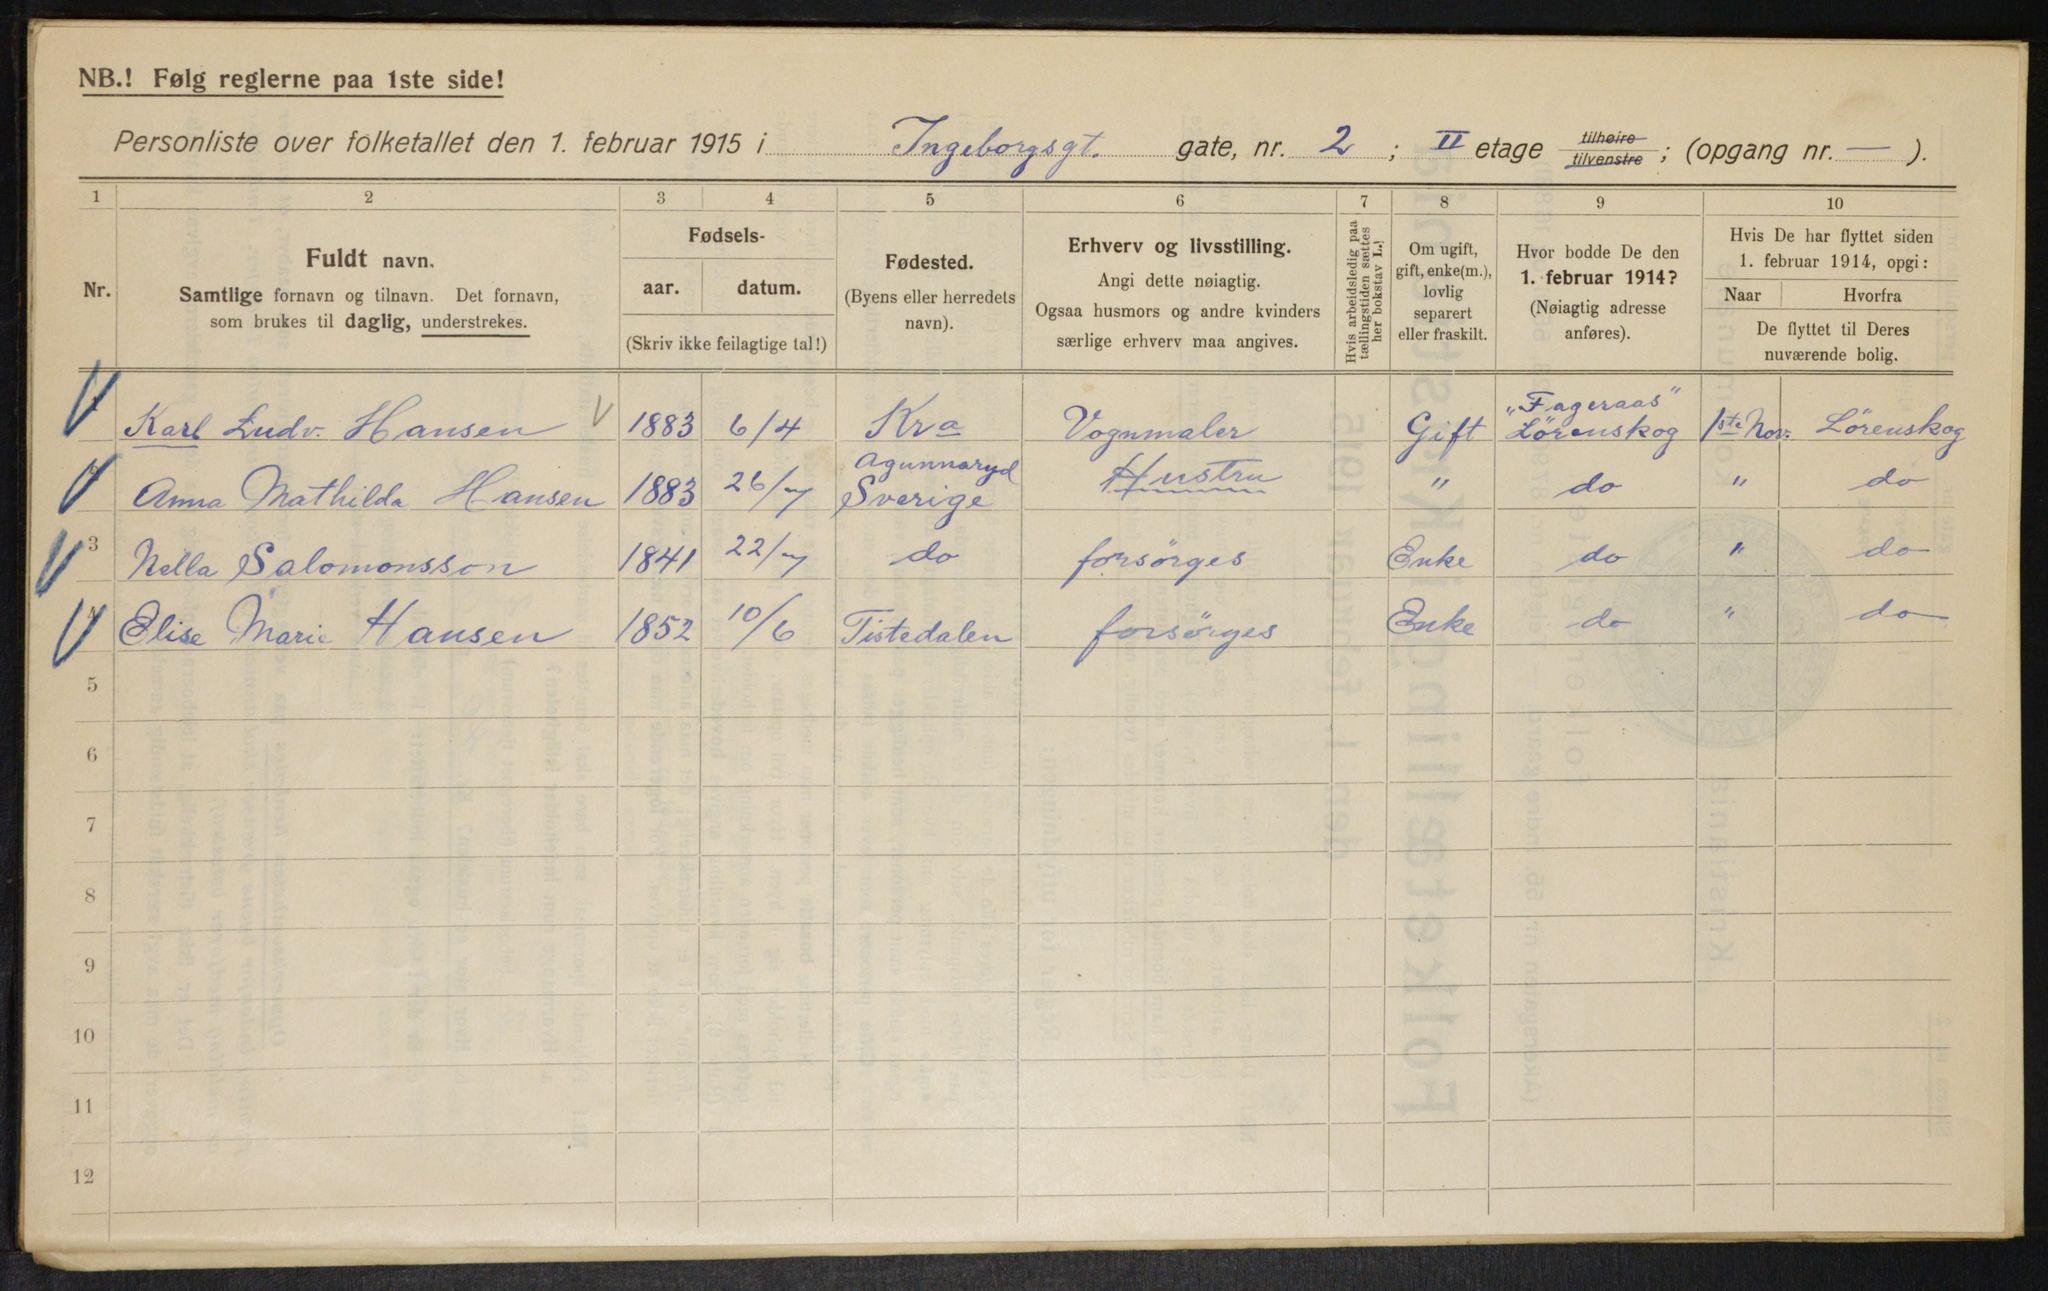 NB.! Følg reglerne paa 1ste side!
Personliste over folketallet den 1. februar 1915 i Ingeborgsgt. gate, nr. 2; II etage tilhøire tilvenstre; (opgang nr. — ).
1 2 3 4 5 6 7 8 9 10
Nr.
Fuldt navn.
Samtlige fornavn og tilnavn. Det fornavn,
som brukes til daglig, understrekes.
Fødsels-
aar. datum.
(Skriv ikke feilagtige tal!)
Fødested.
(Byens eller herredets
navn).
Erhverv og livsstilling.
Angi dette nøiagtig.
Ogsaa husmors og andre kvinders
særlige erhverv maa angives.
Hvis arbeidsledig paa
tællingstiden sættes
her bokstav L.!
Om ugift,
gift, enke(m.),
lovlig
separert
eller fraskilt.
Hvor bodde De den
1. februar 1914?
(Nøiagtig adresse
anføres).
Hvis De har flyttet siden
1. februar 1914, opgi:
Naar Hvorfra
De flyttet til Deres
nuværende bolig.
1 Karl Ludv. Hansen 1883 6/4 Kra Vognmaler Gift „Fageraas" Lørenskog 1ste Nov. Lørenskog
2 Anna Mathilda Hansen 1883 26/7 Agunnaryd Sverige Hustru " do " do
3 Nella Salomonsson 1841 22/7 do forsørges Enke do " do
4 Elise Marie Hansen 1852 10/6 Tistedalen forsørges Enke do " do
5
6
7
8
9
10
11
12